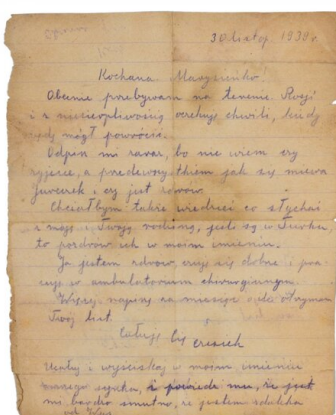 30 listop. 1939 r.
Kochana Marysieńko!
Obecnie przebywam na terenie Rosji
i z niecierpliwością oczekuję chwili, kiedy
będę mógł powrócić.
Odpisz mi zaraz, bo nie wiem czy
żyjecie, a przedewszystkiem jak się miewa
Jureczek i czy jest zdrów.
Chciałbym także wiedzieć co słychać
z moją i Twoją rodziną, jeśli są w
to pozdrów ich w moim imieniu.
Ja jestem zdrów czuję się dobrze i pra-
cuję w ambulatorium chirurgicznym.
Więcej napiszę za miesiąc gdy otrzymam
Twój list.
Całuję Cię
Ucałuj i wyściskaj w moim imieniu
naszego synka, i powiedz mu, że jest
mi bardzo smutno, że jestem zdaleka
od Was